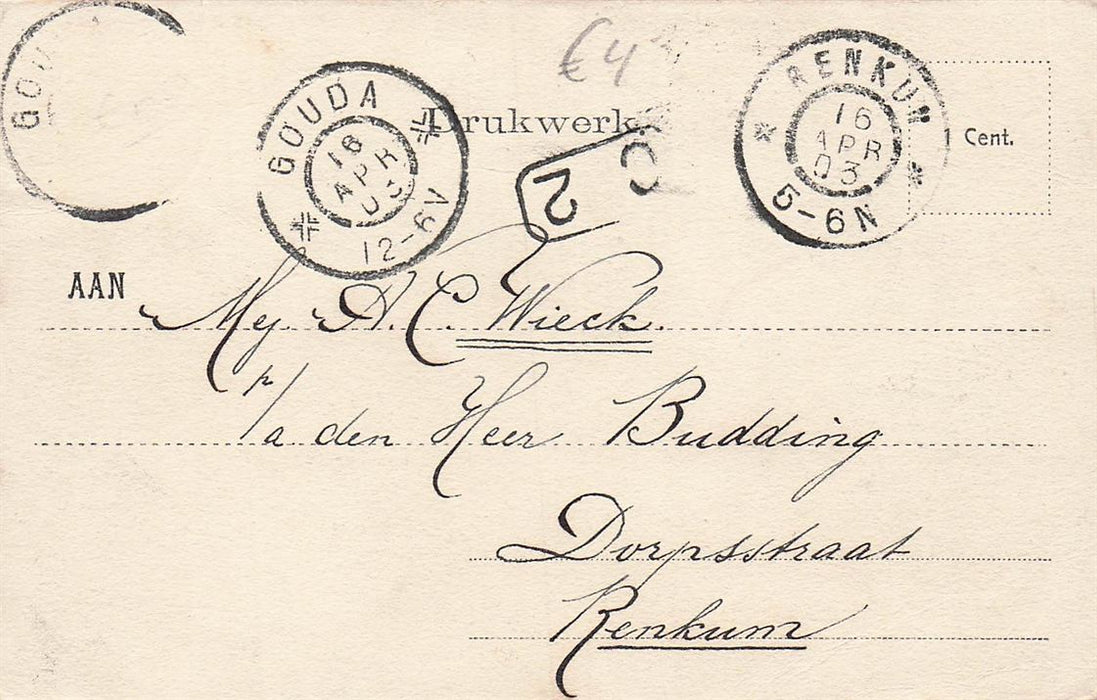 €4
GOU
GOUDA
16
APR
03
12-6V
Drukwerk
2
C
RENKUM
16
APR
03
5-6N
Cent.
AAN
Mej. A. C. Wieck.
p/a den Heer Budding
Dorpsstraat
Renkum